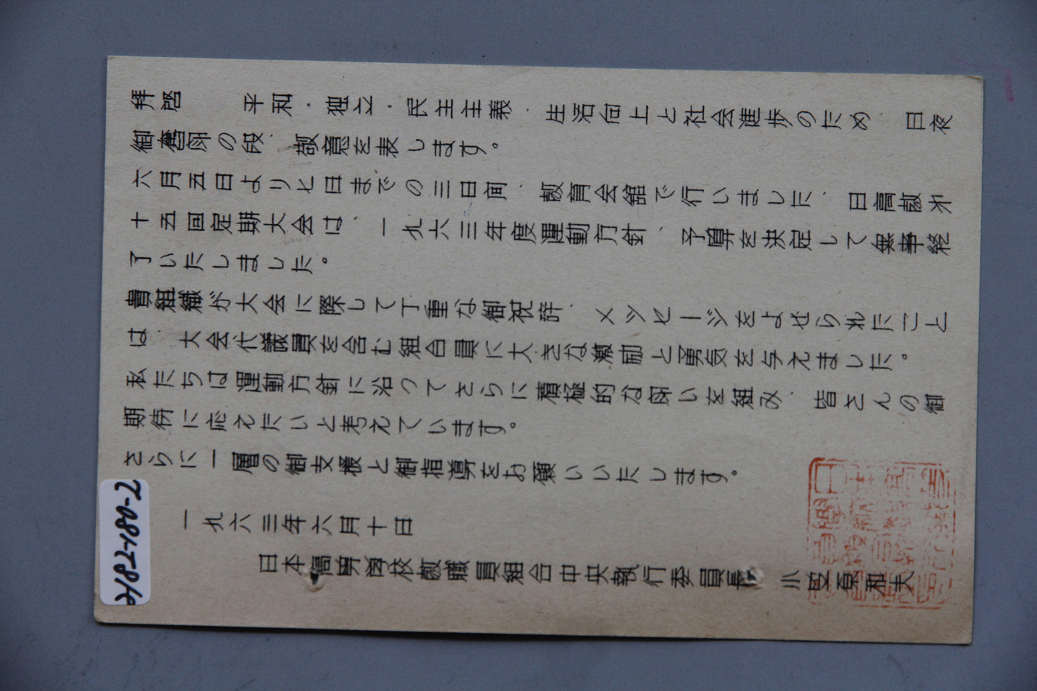 拝啓　平和・独立・民主主義・生活向上と社会進歩のため、日夜
御奮闘の段、敬意を表します。
六月五日より七日までの三日間、教育会館で行いました、日高教第
十五回定期大会は、一九六三年度運動方針、予算を決定して無事終
了いたしました。
貴組織が大会に際して丁重な御祝辞、メッセージをよせられたことと
は、大会代議員を含む組合員に大きな激励と勇気を与えました。
私たちは運動方針に沿ってさらに積極的な闘いを組み、皆さんの御
期待に応えたいと考えています。
さらに一層の御支援と御指導をお願いいたします。
一九六三年六月十日
日本高等学校教職員組合中央執行委員長　小笠原和夫